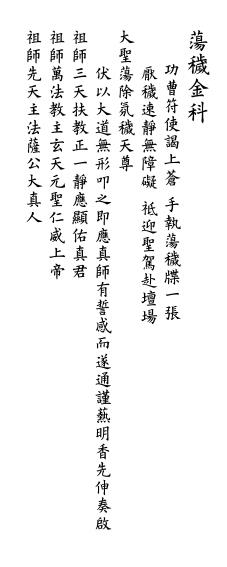 蕩穢金科
功曹符使謁上蒼 手執蕩穢牒一張
厭穢速靜無障礙 祗迎聖駕赴壇場
大聖蕩除氛穢天尊
伏以大道無形叩之即應真師有誓感而遂通謹爇明香先伸奏啟
祖師三天扶教正一靜應顯佑真君
祖師萬法教主玄天元聖仁威上帝
祖師先天主法薩公大真人